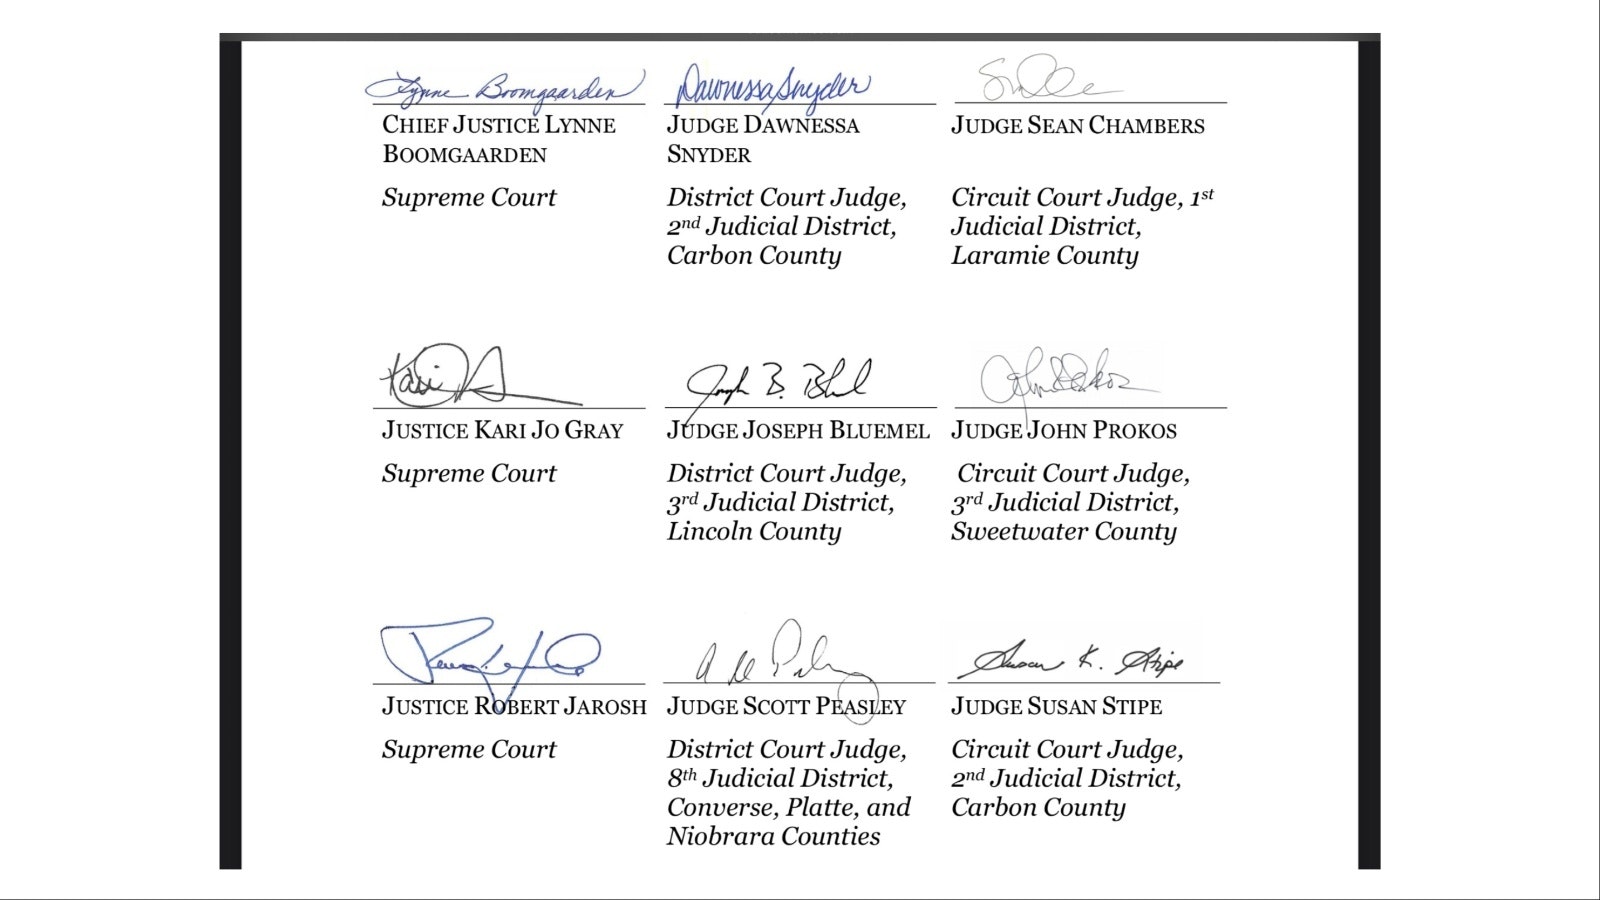 Lynne Boomgaarden
CHIEF JUSTICE LYNNE
BOOMGAARDEN
Supreme Court
Dawnessa Snyder
JUDGE DAWNESSA
SNYDER
District Court Judge,
2nd Judicial District,
Carbon County
JUDGE SEAN CHAMBERS
Circuit Court Judge, 1st
Judicial District,
Laramie County
Kari
JUSTICE KARI JO GRAY
Supreme Court
Joseph B.
JUDGE JOSEPH BLUEMEL
District Court Judge,
3rd Judicial District,
Lincoln County
John Prokos
JUDGE JOHN PROKOS
Circuit Court Judge,
3rd Judicial District,
Sweetwater County
JUSTICE ROBERT JAROSH
Supreme Court
JUDGE SCOTT PEASLEY
District Court Judge,
8th Judicial District,
Converse, Platte, and
Niobrara Counties
Susan K. Stipe
JUDGE SUSAN STIPE
Circuit Court Judge,
2nd Judicial District,
Carbon County